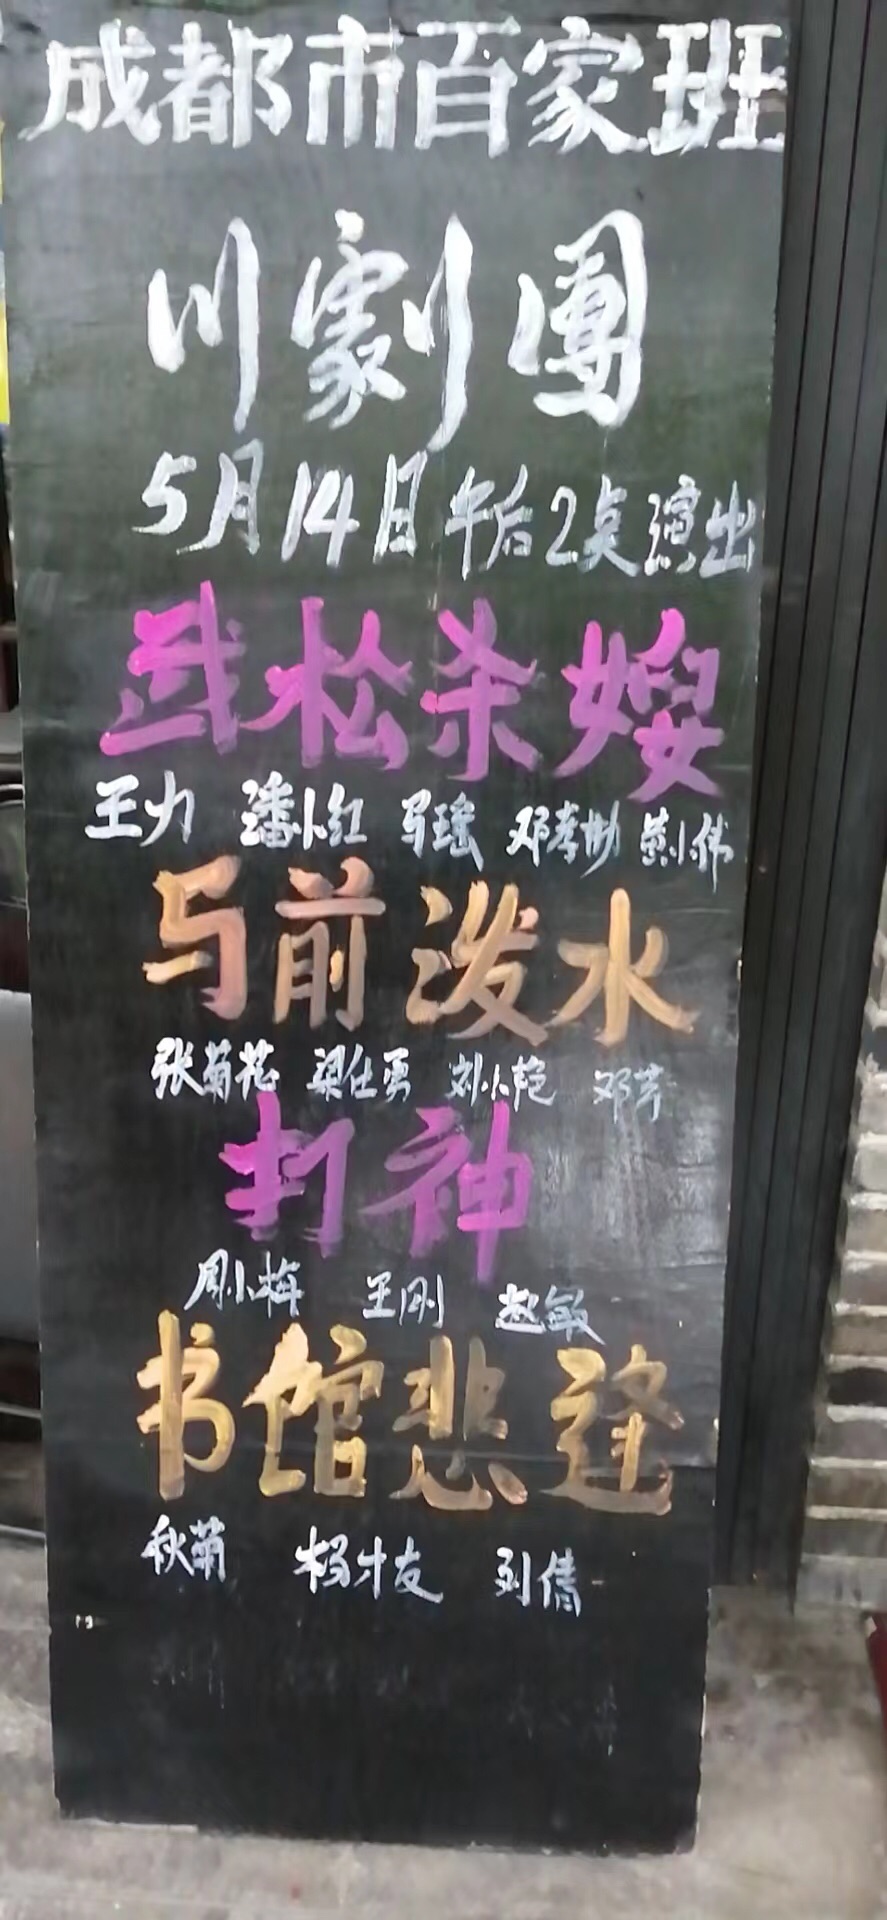 成都市百家班
川劇團
5月14日午后2点演出
武松杀嫂
王力 潘小红 马瑶 邓孝彬 黄小伟
马前泼水
张菊花 梁仕勇 刘小艳 邓芹
打神
周小梅 王刚 赵敏
书馆悲逢
秋菊 杨才友 刘倩